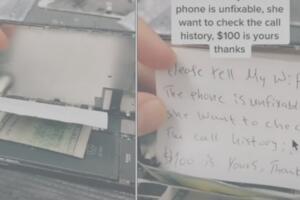 phone is unfixable, she
want to check the call
history, $100 is yours
thanks
Please tell My Wif
The phone is unfixable
she want to chec
The call history.
$100 is Yours, Thank